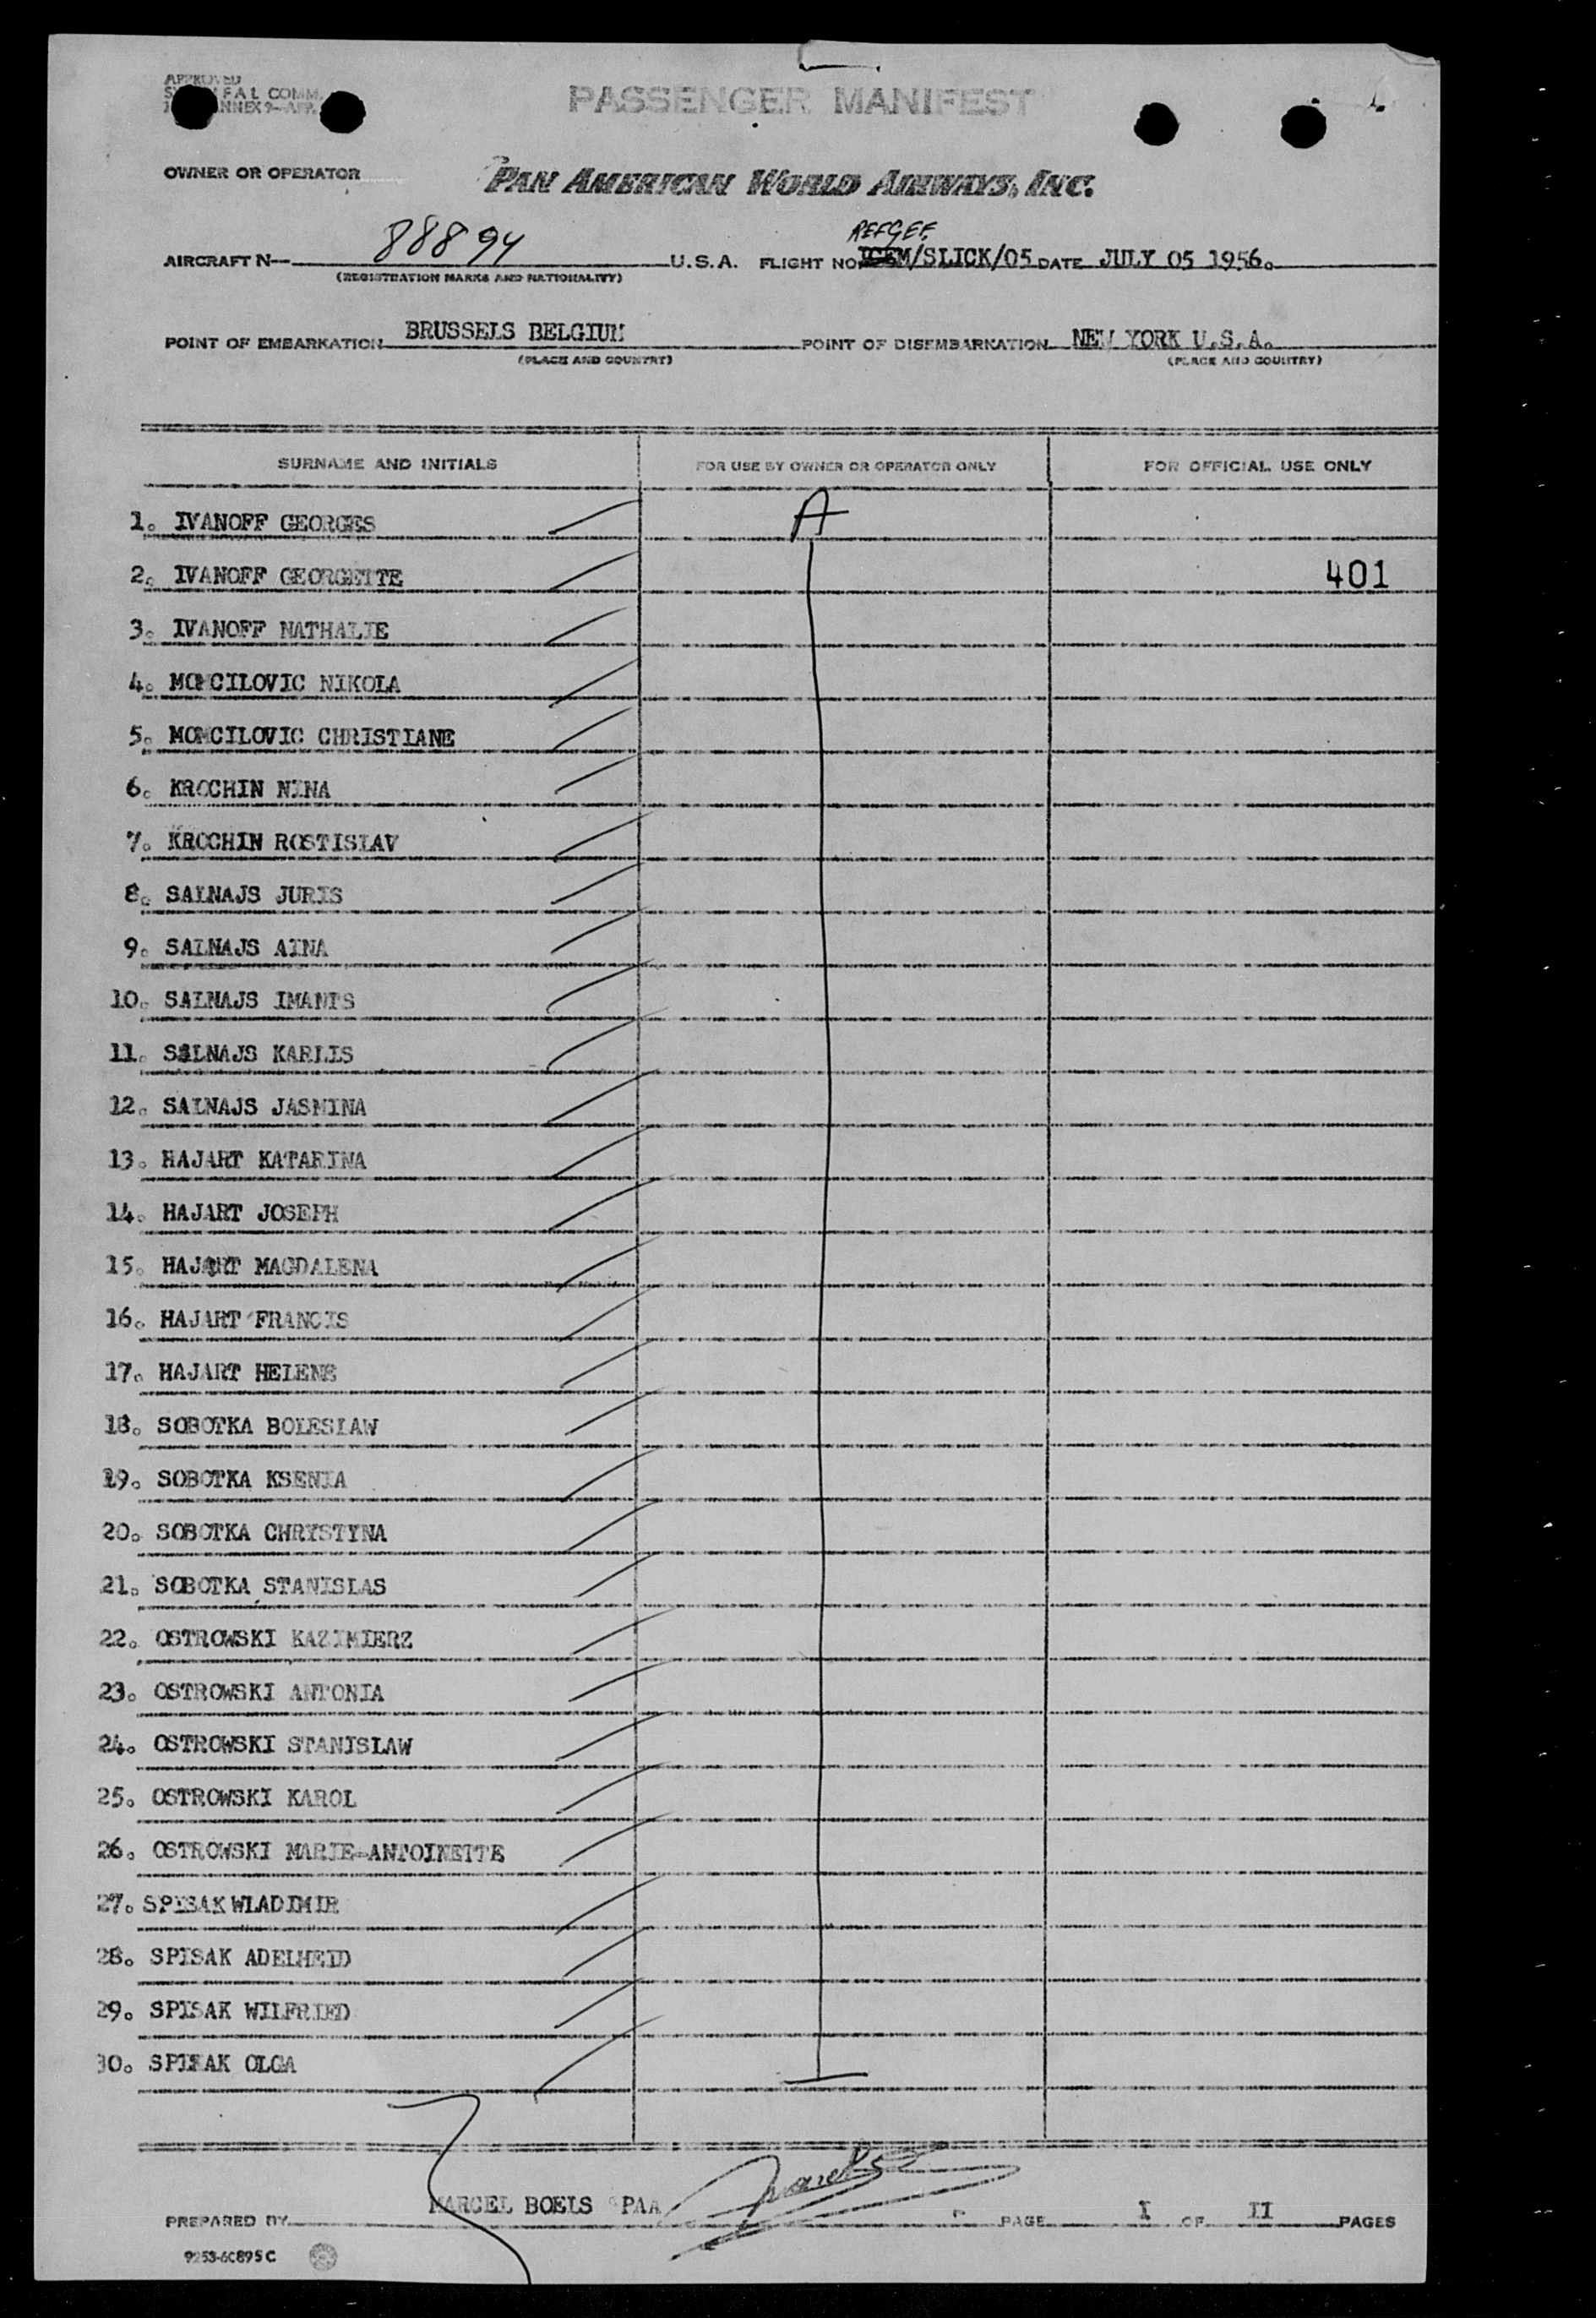 APPROVED
FAL COMM.
ANNEX 9-APP.
PASSENGER MANIFEST
OWNER OR OPERATOR
PAN AMERICAN WORLD AIRWAYS, INC.
REFGEE
AIRCRAFT N— 88894 U.S.A. FLIGHT NO. ICEM/SLICK/05 DATE JULY 05 1956.
(REGISTRATION MARKS AND NATIONALITY)
POINT OF EMBARKATION BRUSSELS BELGIUM POINT OF DISEMBARKATION NEW YORK U.S.A.
(PLACE AND COUNTRY) (PLACE AND COUNTRY)
SURNAME AND INITIALS FOR USE BY OWNER OR OPERATOR ONLY FOR OFFICIAL USE ONLY
1. IVANOFF GEORGES A
2. IVANOFF GEORGETTE 401
3. IVANOFF NATHALIE
4. MOMCILOVIC NIKOLA
5. MOMCILOVIC CHRISTIANE
6. KROCHIN NINA
7. KROCHIN ROSTISLAV
8. SALNAJS JURIS
9. SALNAJS AINA
10. SALNAJS IMANTS
11. SALNAJS KARLIS
12. SALNAJS JASMINA
13. HAJART KATARINA
14. HAJART JOSEPH
15. HAJART MAGDALENA
16. HAJART FRANCIS
17. HAJART HELENE
18. SOBOTKA BOLESLAW
19. SOBOTKA KSENIA
20. SOBOTKA CHRYSTYNA
21. SOBOTKA STANISLAS
22. OSTROWSKI KAZIMIERZ
23. OSTROWSKI ANTONIA
24. OSTROWSKI STANISLAW
25. OSTROWSKI KAROL
26. OSTROWSKI MARIE-ANTOINETTE
27. SPISAK WLADIMIR
28. SPISAK ADELHEID
29. SPISAK WILFRIED
30. SPISAK OLGA
PREPARED BY MARCEL BOELS PAA PAGE I OF II PAGES
9253-6C895C